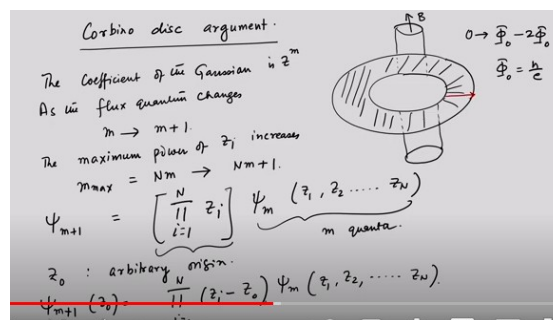 Corbino disc argument.
B
0 → Φ̃₀ - 2Φ̃₀
Φ̃₀ = h/e
The coefficient of the Gaussian is z^m
As the flux quantum changes
m → m+1.
The maximum power of z_i increases
m_max = Nm → Nm+1.
Ψ_{m+1} = [∏_{i=1}^{N} z_i] Ψ_m (z_1, z_2 ..... z_N)
m quanta.
z_0 : arbitrary origin.
Ψ_{m+1} (z_0) = ∏^{N} (z_i - z_0) Ψ_m (z_1, z_2, ..... z_N).